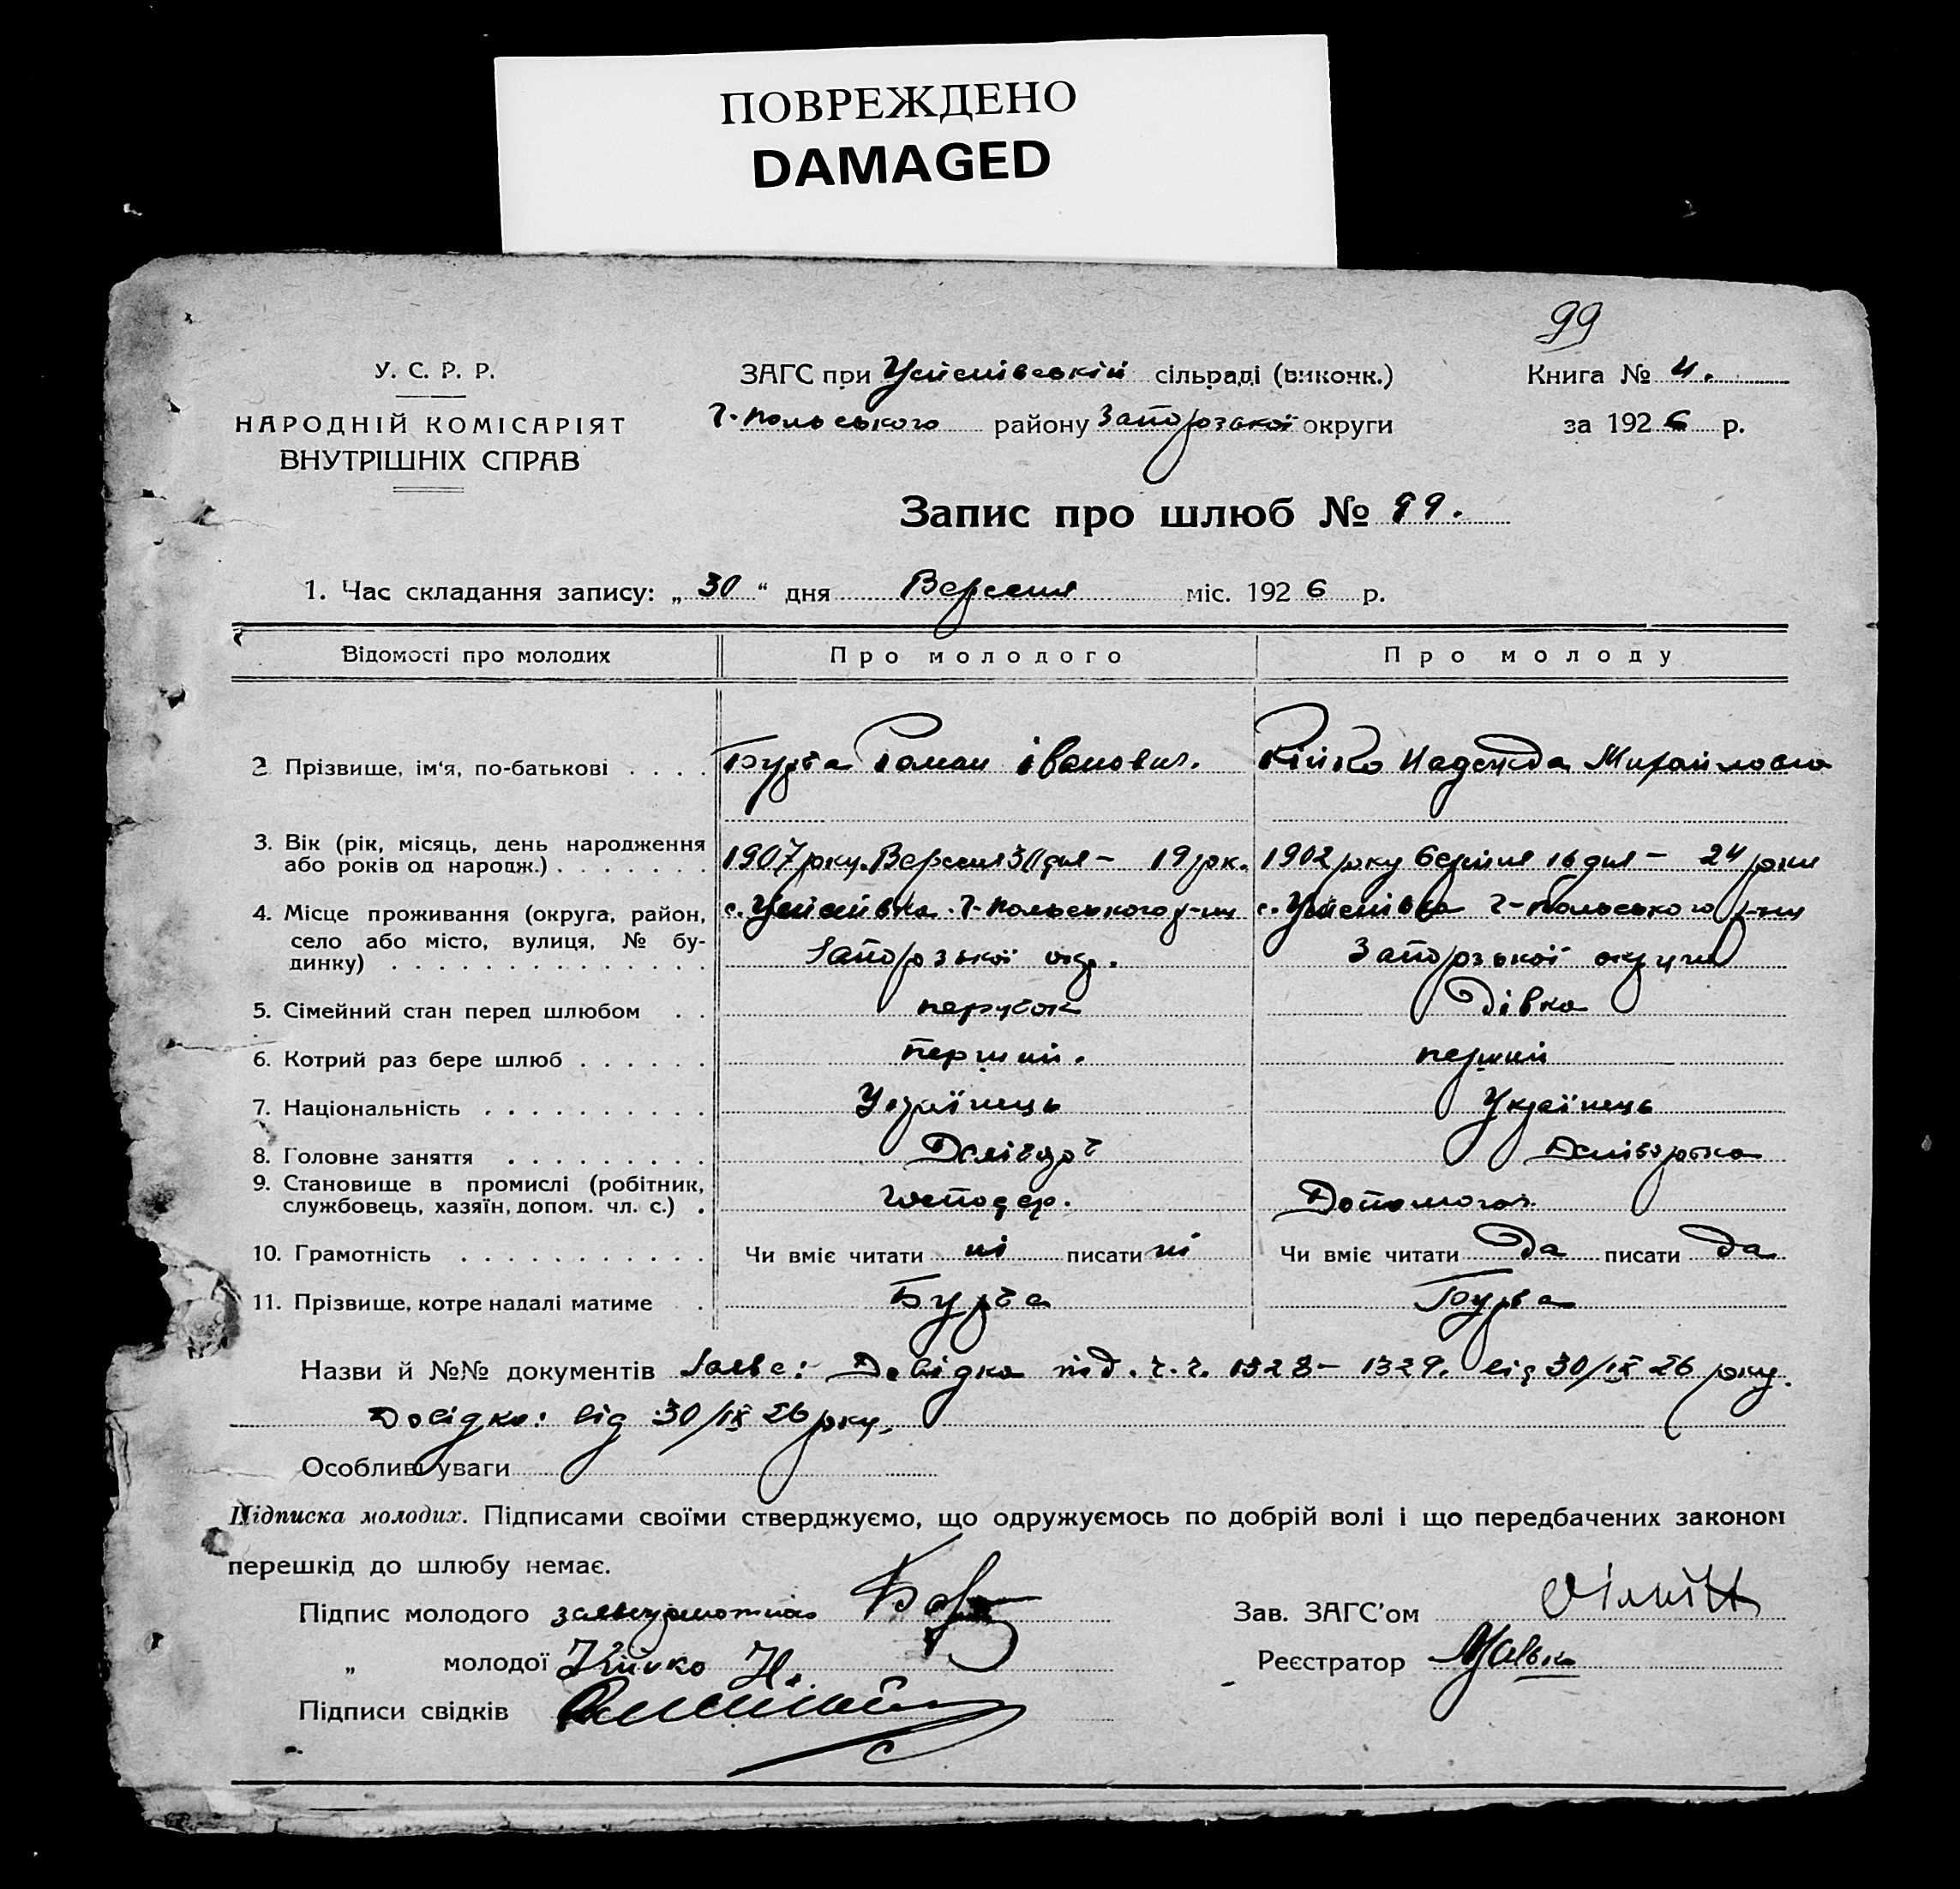 ПОВРЕЖДЕНО
DAMAGED
99
У. С. Р. Р.
НАРОДНІЙ КОМІСАРІЯТ
ВНУТРІШНІХ СПРАВ
ЗАГС при Успенівській сільраді (виконк.)
Г-Польського району Запорозької округи
Книга № 4.
за 1926 р.
Запис про шлюб № 99.
1. Час складання запису: „ 30 “ дня Вересня міс. 1926 р.
Відомості про молодих Про молодого Про молоду
2 Прізвище, ім‘я, по-батькові . . . . Бурба Роман Іванович. Кійко Надежда Михайловна
3. Вік (рік, місяць, день народження
або років од народж.) . . . . . . . 1907 року. Вересня 30 дня – 19 рок. 1902 року Серпня 16 дня – 24 роки
4. Місце проживання (округа, район, с. Успенівка Г-Польського р-ну с. Успенівка Г-Польського р-ну
село або місто, вулиця, № бу-
динку) . . . . . . . . . . . . . . Запорозької окр. Запорзької округи
5. Сімейний стан перед шлюбом . . парубок Дівка
6. Котрий раз бере шлюб . . . . . . перший. перший
7. Національність . . . . . . . . . . Українець Українець
8. Головне заняття . . . . . . . . .
9. Становище в промислі (робітник,
службовець, хазяїн, допом. чл. с.) . господар. Допомогає.
10. Грамотність . . . . . . . . . . . Чи вміє читати ні писати ні Чи вміє читати да писати да
11. Прізвище, котре надалі матиме . Бурба Бурба
Назви й №№ документів Заява: Довідка під. ч.ч. 1328 – 1329. від 30/ІХ 26 року.
Довідка: від 30/ІХ 26 року.
Особливі уваги
Підписка молодих. Підписами своїми стверджуємо, що одружуємось по добрій волі і що передбачених законом
перешкід до шлюбу немає.
Підпис молодого Зав. ЗАГС’ом
„ молодої Кійко Н. Реєстратор
Підписи свідків